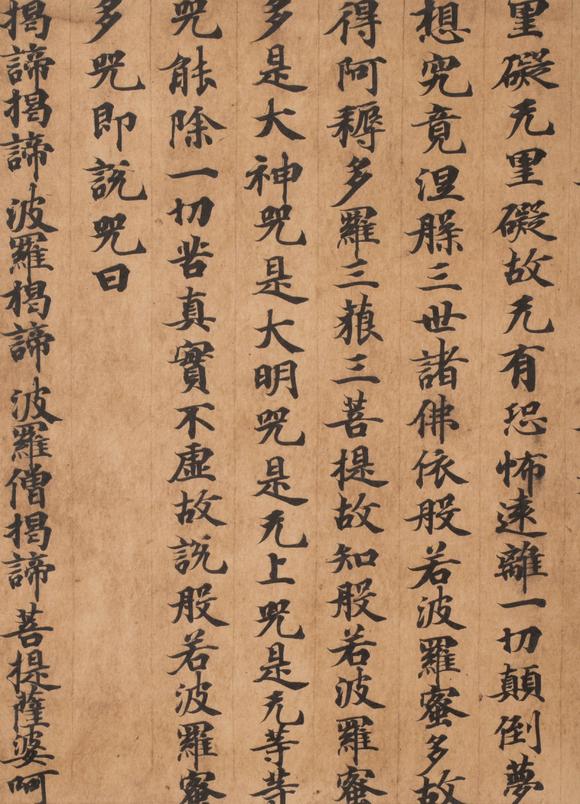 罣礙无罣礙故无有恐怖遠離一切顛倒夢
想究竟涅槃三世諸佛依般若波羅蜜多故
得阿耨多羅三藐三菩提故知般若波羅蜜
多是大神咒是大明咒是无上咒是无等等
咒能除一切苦真實不虛故說般若波羅蜜
多咒即說咒曰
揭諦揭諦波羅揭諦波羅僧揭諦菩提薩婆呵